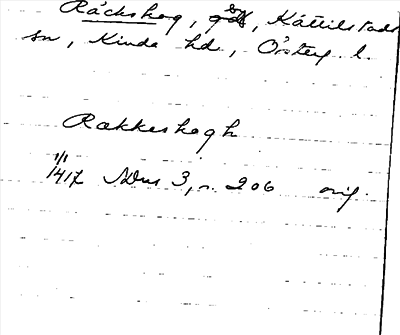 Räckshog, gd, Kättilstads
sn, Kinda hd, Österg. l.
Rakkeshogh
1/1
1417 NDns 3, s. 206 orig.